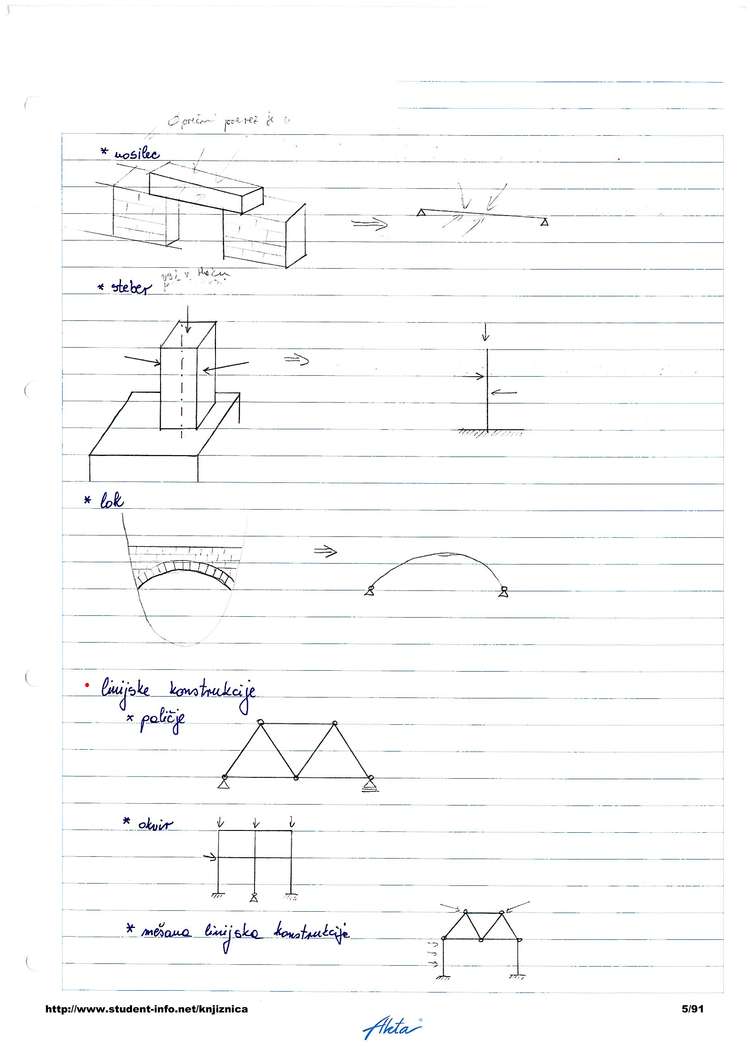 * nosilec
* steber
* lok
• linijske konstrukcije
* paličje
* okvir
* mešana linijska konstrukcije
http://www.student-info.net/knjiznica 5/91
Akta